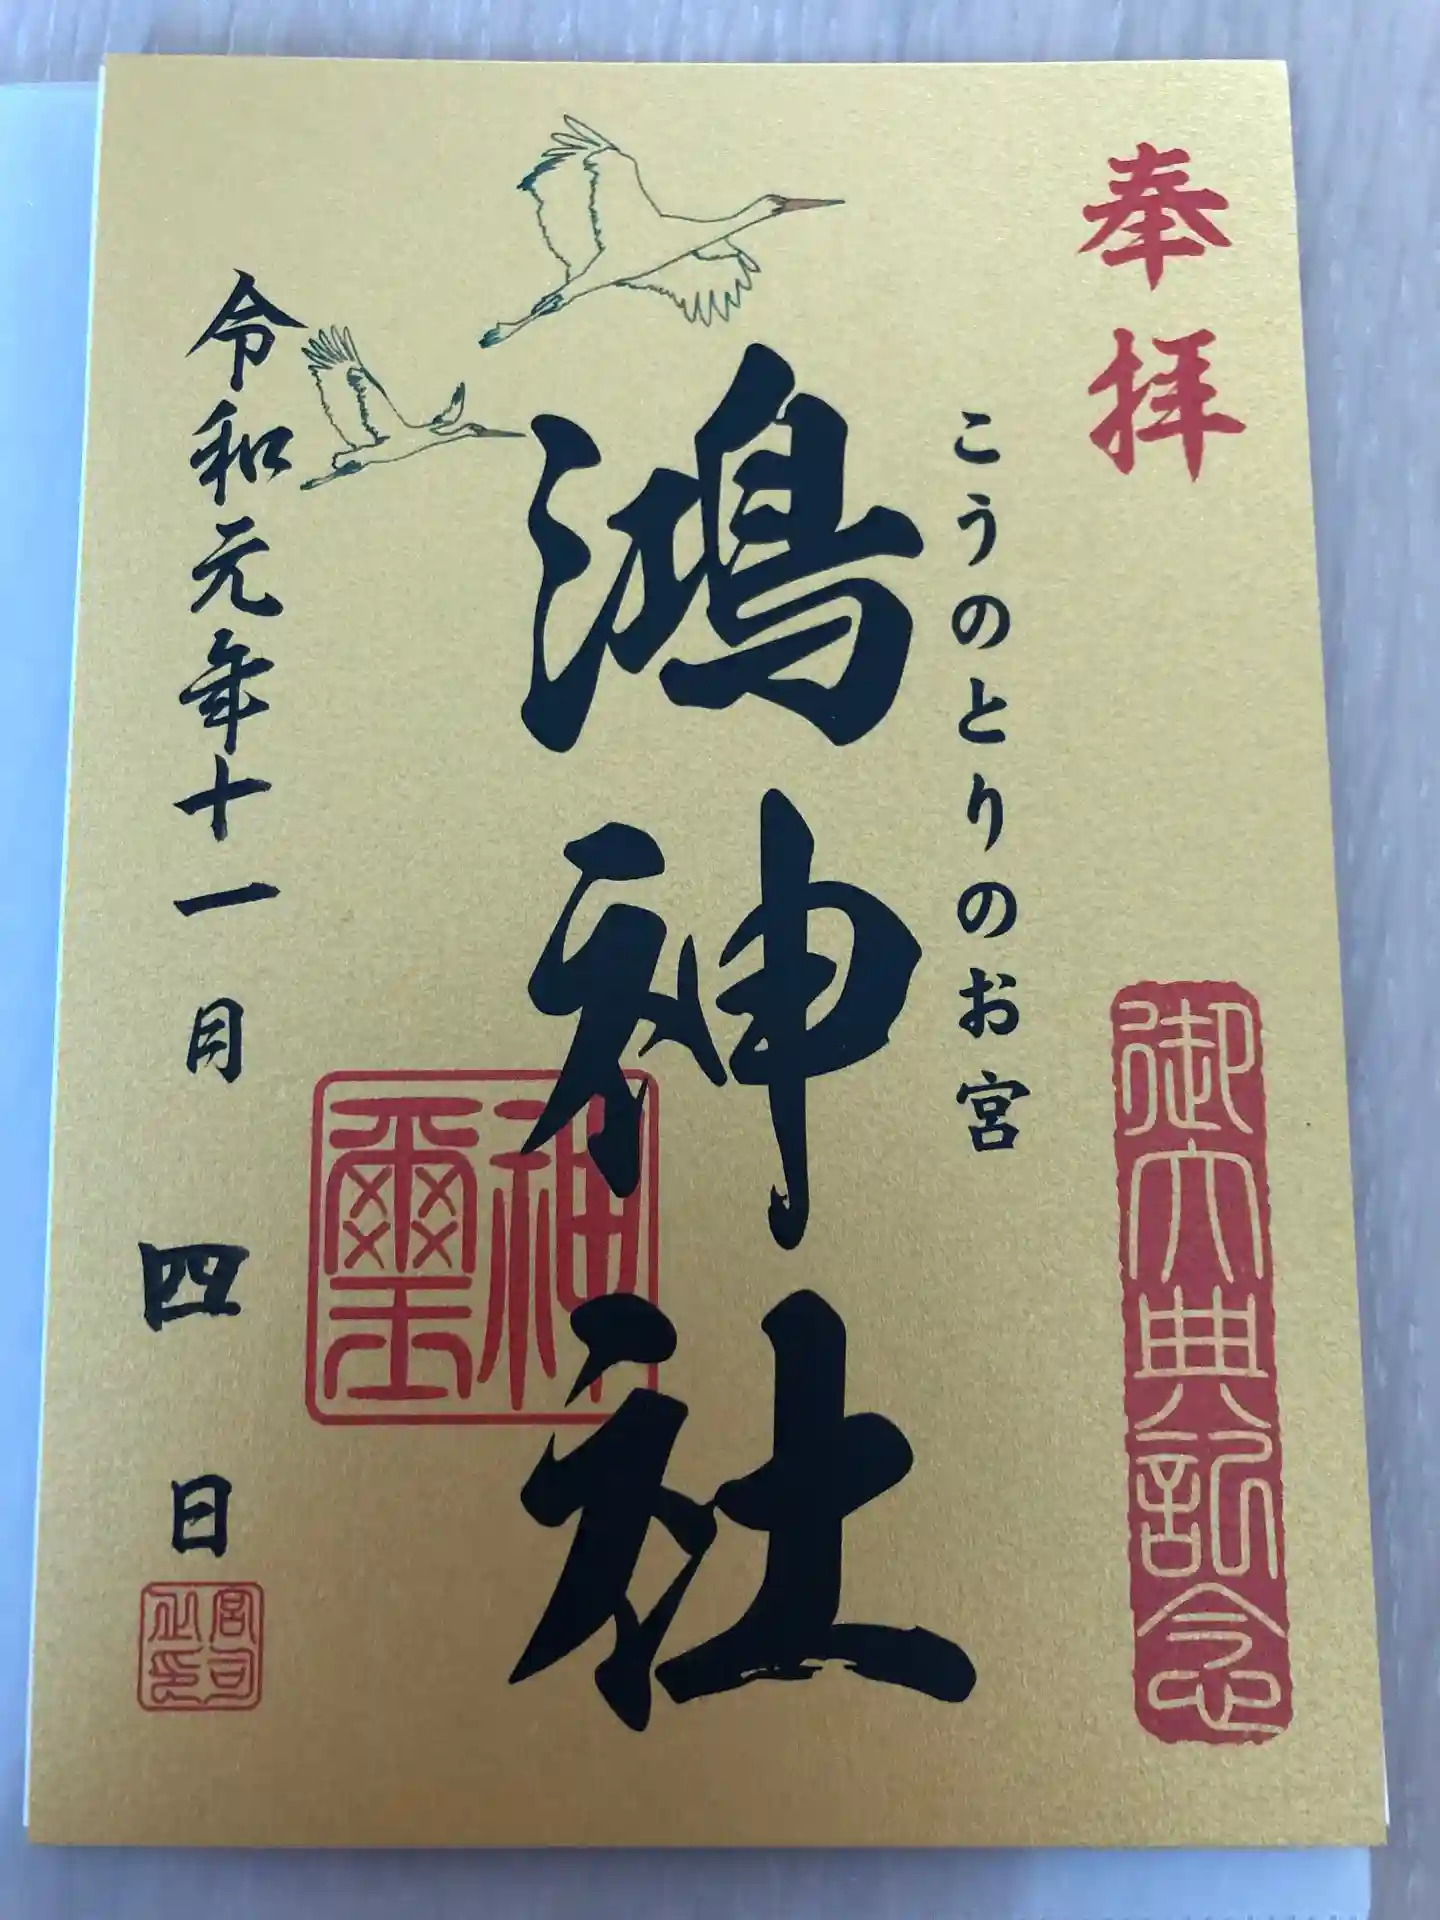 奉拝
御大典記念
こうのとりのお宮
鴻神社
神璽
令和元年十一月四日
宮司之印